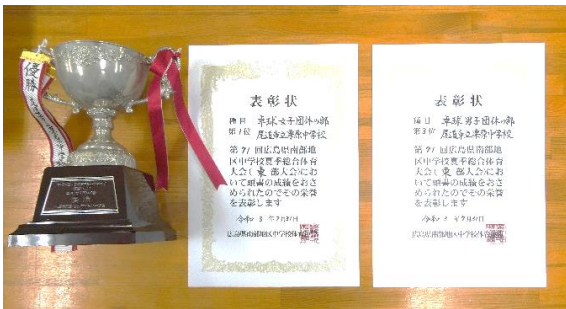 優勝
表彰状
種目 卓球女子団体の部
第1位 尾道市立栗原中学校
第71回広島県南部地
区中学校夏季総合体育
大会(東部大会)にお
いて頭書の成績をおさ
められたのでその栄誉
を表彰します
令和3年7月
広島県南部地区中学校体育連盟
表彰状
種目 卓球男子団体の部
第3位 尾道市立栗原中学校
第71回広島県南部地
区中学校夏季総合体育
大会(東部大会)にお
いて頭書の成績をおさ
められたのでその栄誉
を表彰します
令和3年7月
広島県南部地区中学校体育連盟